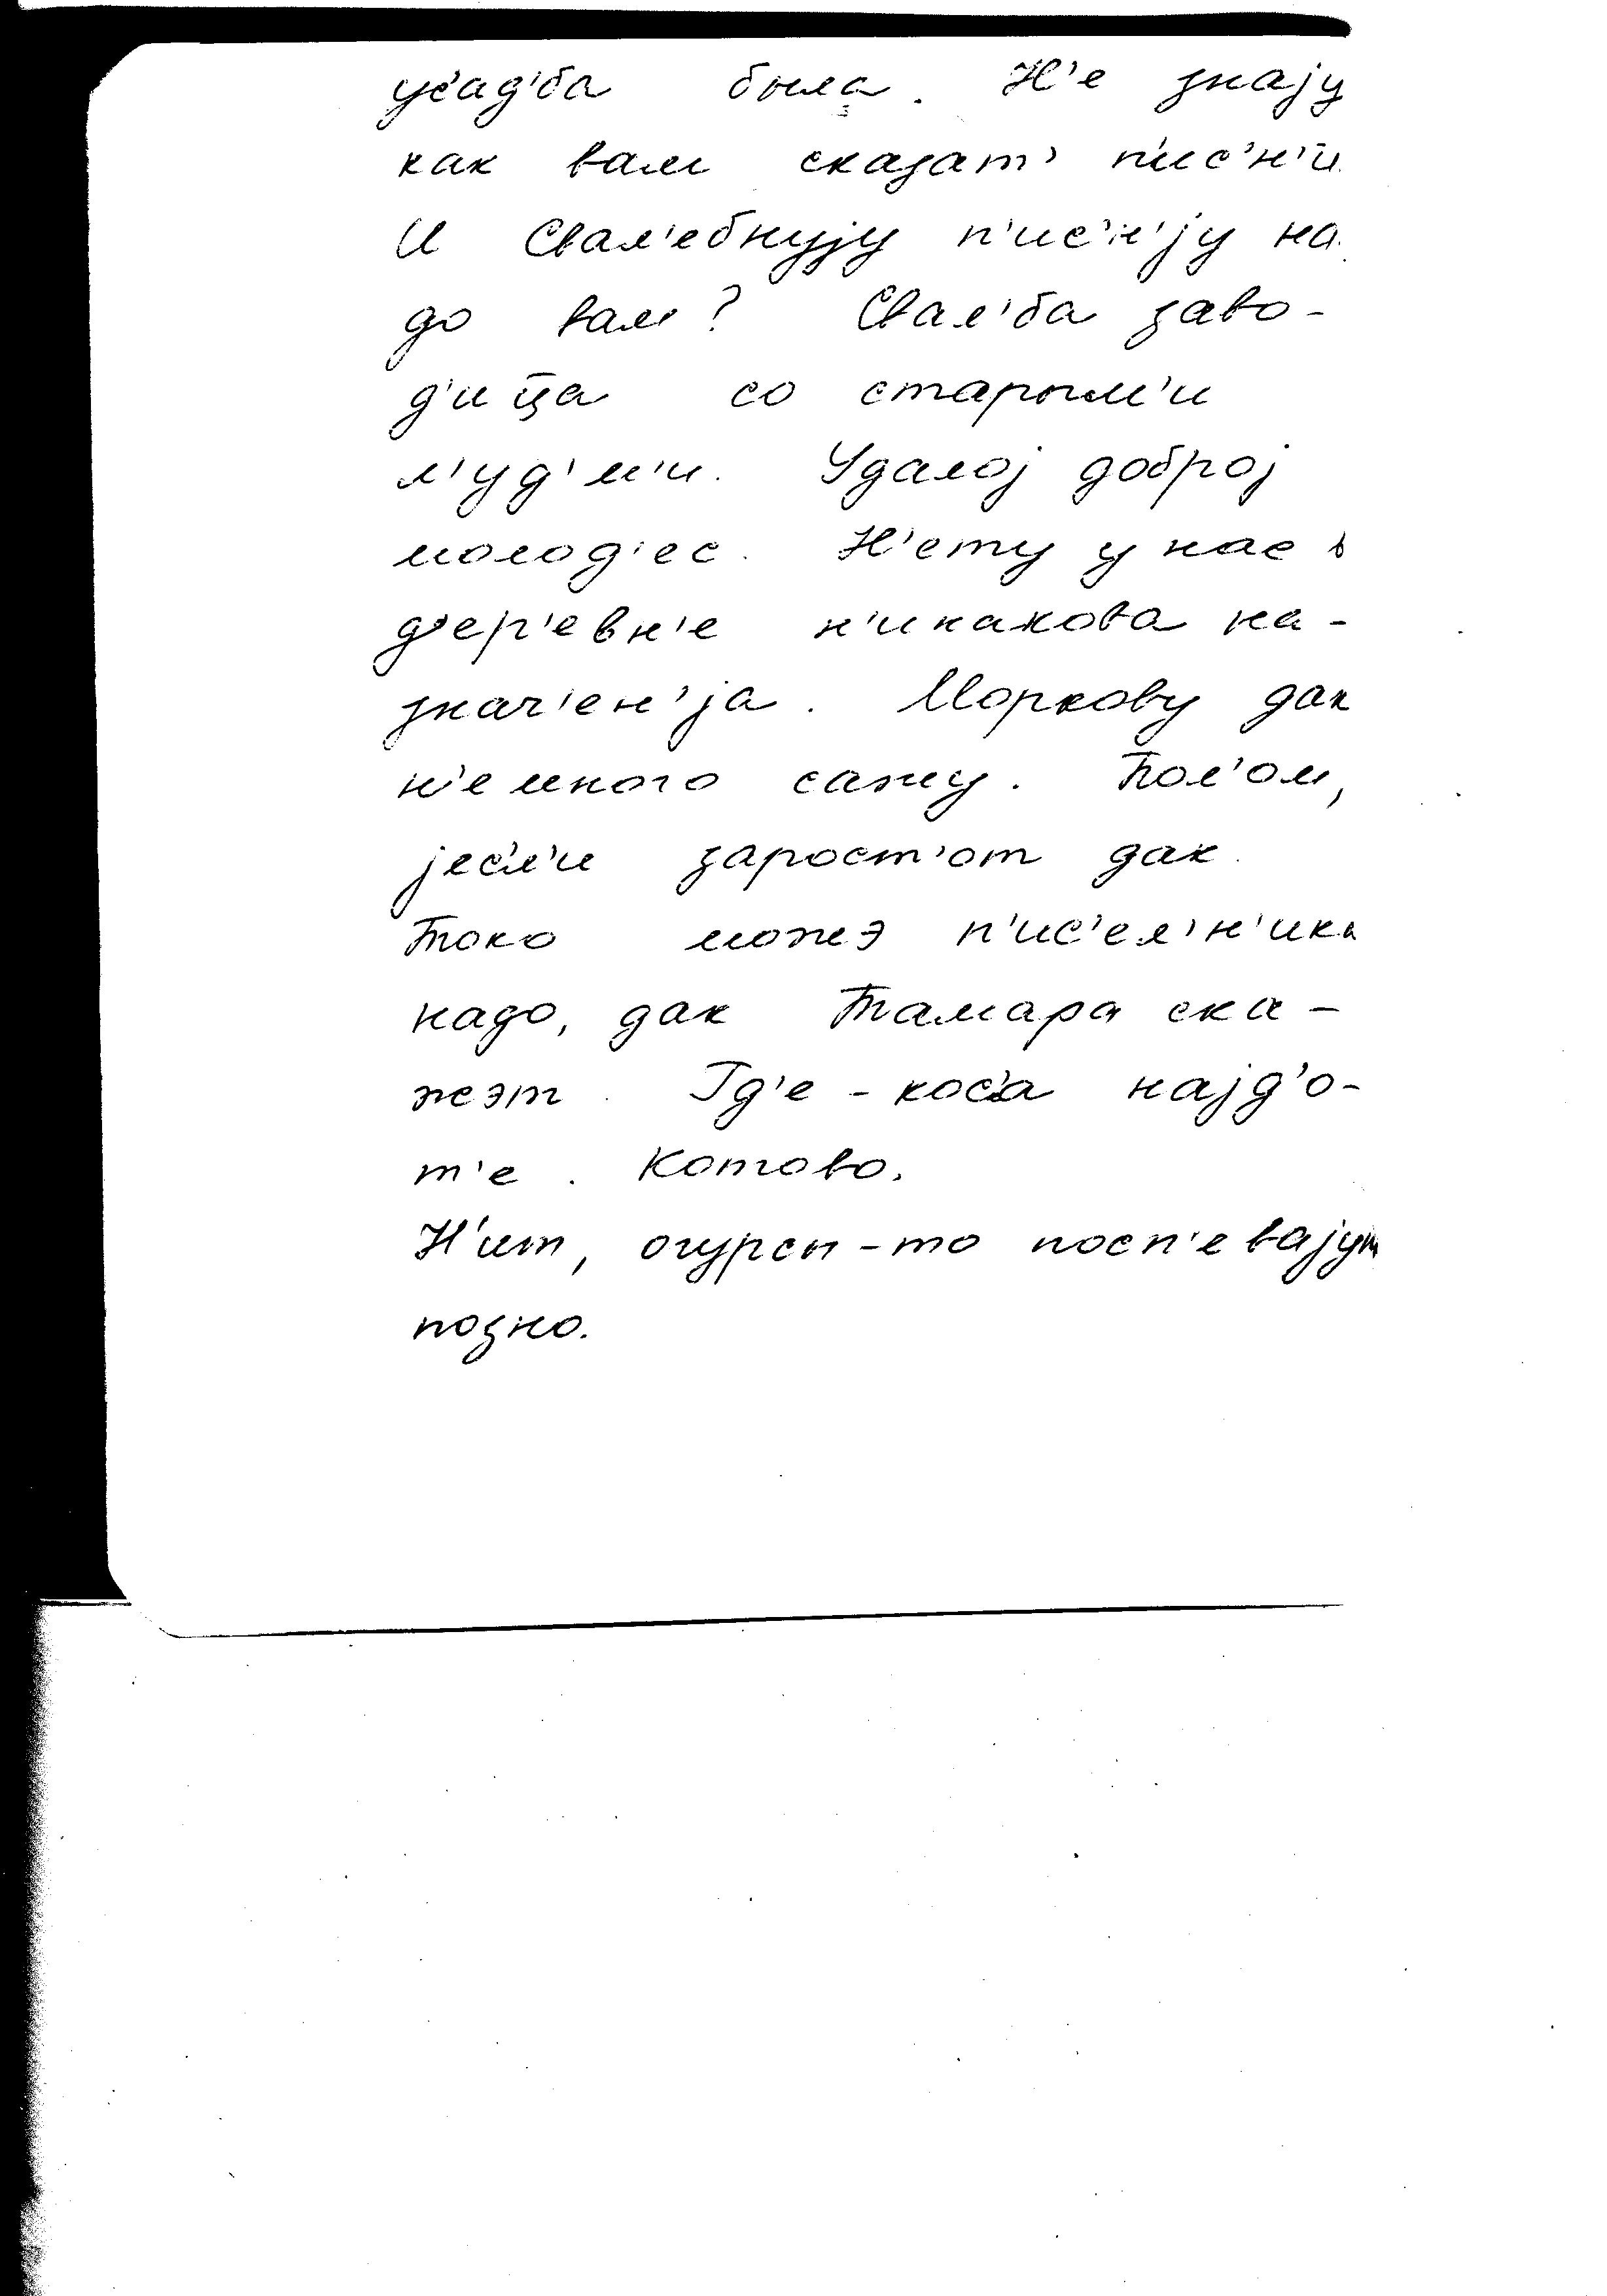 ус'ад'ба была. Н'е знају
как вам сказат' п'ис'н'и.
И Свал'ебнују п'ис'н'ју на-
до вам? Свал'ба заво-
д'ица со старым'и
л'уд'м'и. Удалој доброј
молод'ес. Н'ету у нас в
д'ер'евн'е н'икакова на-
знач'ен'ја. Моркову дак
н'емного сажу. Пол'ом,
јес'л'и зарост'от дак.
Токо можэ п'ис'ел'н'ика
надо, дак Тамара ска-
жэт. Гд'е-кос'а најд'о-
т'е. Котово.
Н'ит, огурсы-то посп'евајут
позно.